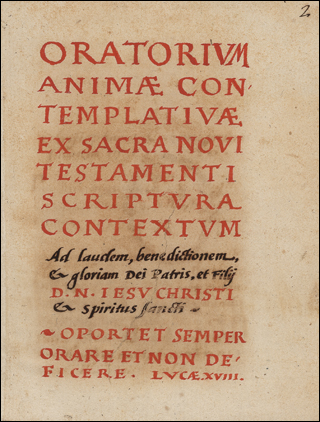 2.
ORATORIVM
ANIMÆ CON-
TEMPLATIVÆ
EX SACRA NOVI
TESTAMENTI
SCRIPTURA
CONTEXTVM
Ad laudem, benedictionem,
& gloriam Dei Patris, et Filij
D. N. IESU CHRISTI
& Spiritus sancti ~
~ OPORTET SEMPER
ORARE ET NON DE-
FICERE. LVCÆ.XVIII.